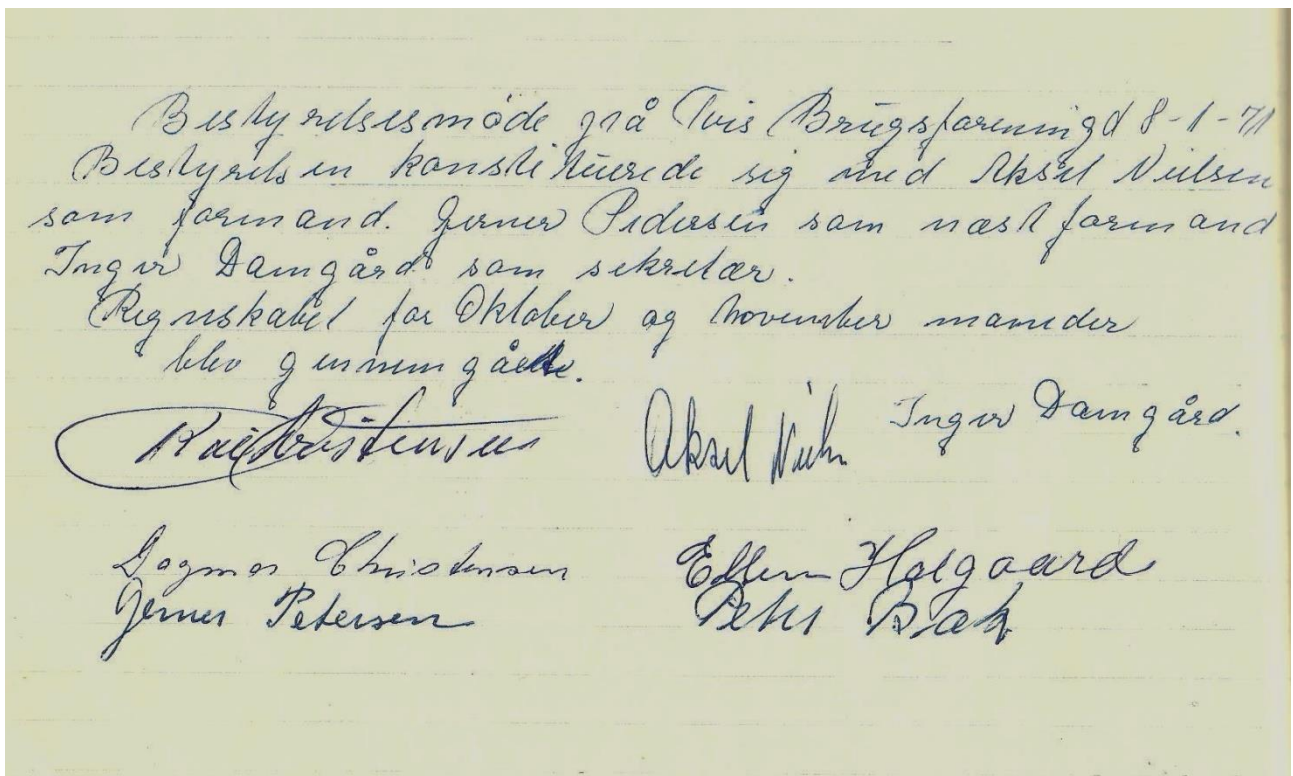 Bestyrelsesmøde på Tvis Brugsforening d 8-1-71
Bestyrelsen konstituerede sig med Aksel Nielsen
som formand. Jerner Pedersen som næstformand
Inger Damgård som sekretær.
Regnskabet for Oktober og November måneder
blev gennemgået.
Kai Christensen Aksel Nielsen Inger Damgård.
Dagmar Christensen Ellen Halgaard
Jerner Petersen Peter Bak